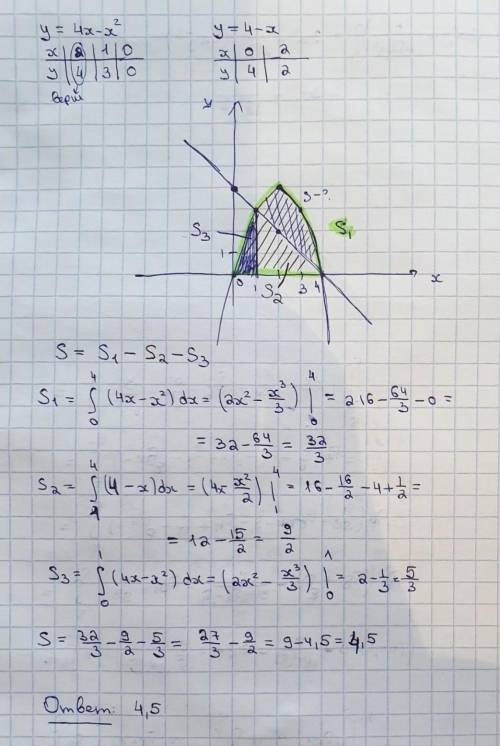 y = 4x-x² y = 4-x
x | 2 | 1 | 0 x | 0 | 2
y | 4 | 3 | 0 y | 4 | 2
верш
y
S-?
S₃
S₁
1
0 1 S₂ 3 4 x
S = S₁ - S₂ - S₃
S₁ = ∫₀⁴ (4x-x²) dx = (2x² - x³/3) |₀⁴ = 2·16 - 64/3 - 0 =
= 32 - 64/3 = 32/3
S₂ = ∫₁⁴ (4-x)dx = (4x - x²/2) |₁⁴ = 16 - 16/2 - 4 + 1/2 =
= 12 - 15/2 = 9/2
S₃ = ∫₀¹ (4x-x²) dx = (2x² - x³/3) |₀¹ = 2 - 1/3 = 5/3
S = 32/3 - 9/2 - 5/3 = 27/3 - 9/2 = 9 - 4,5 = 4,5
Ответ: 4,5